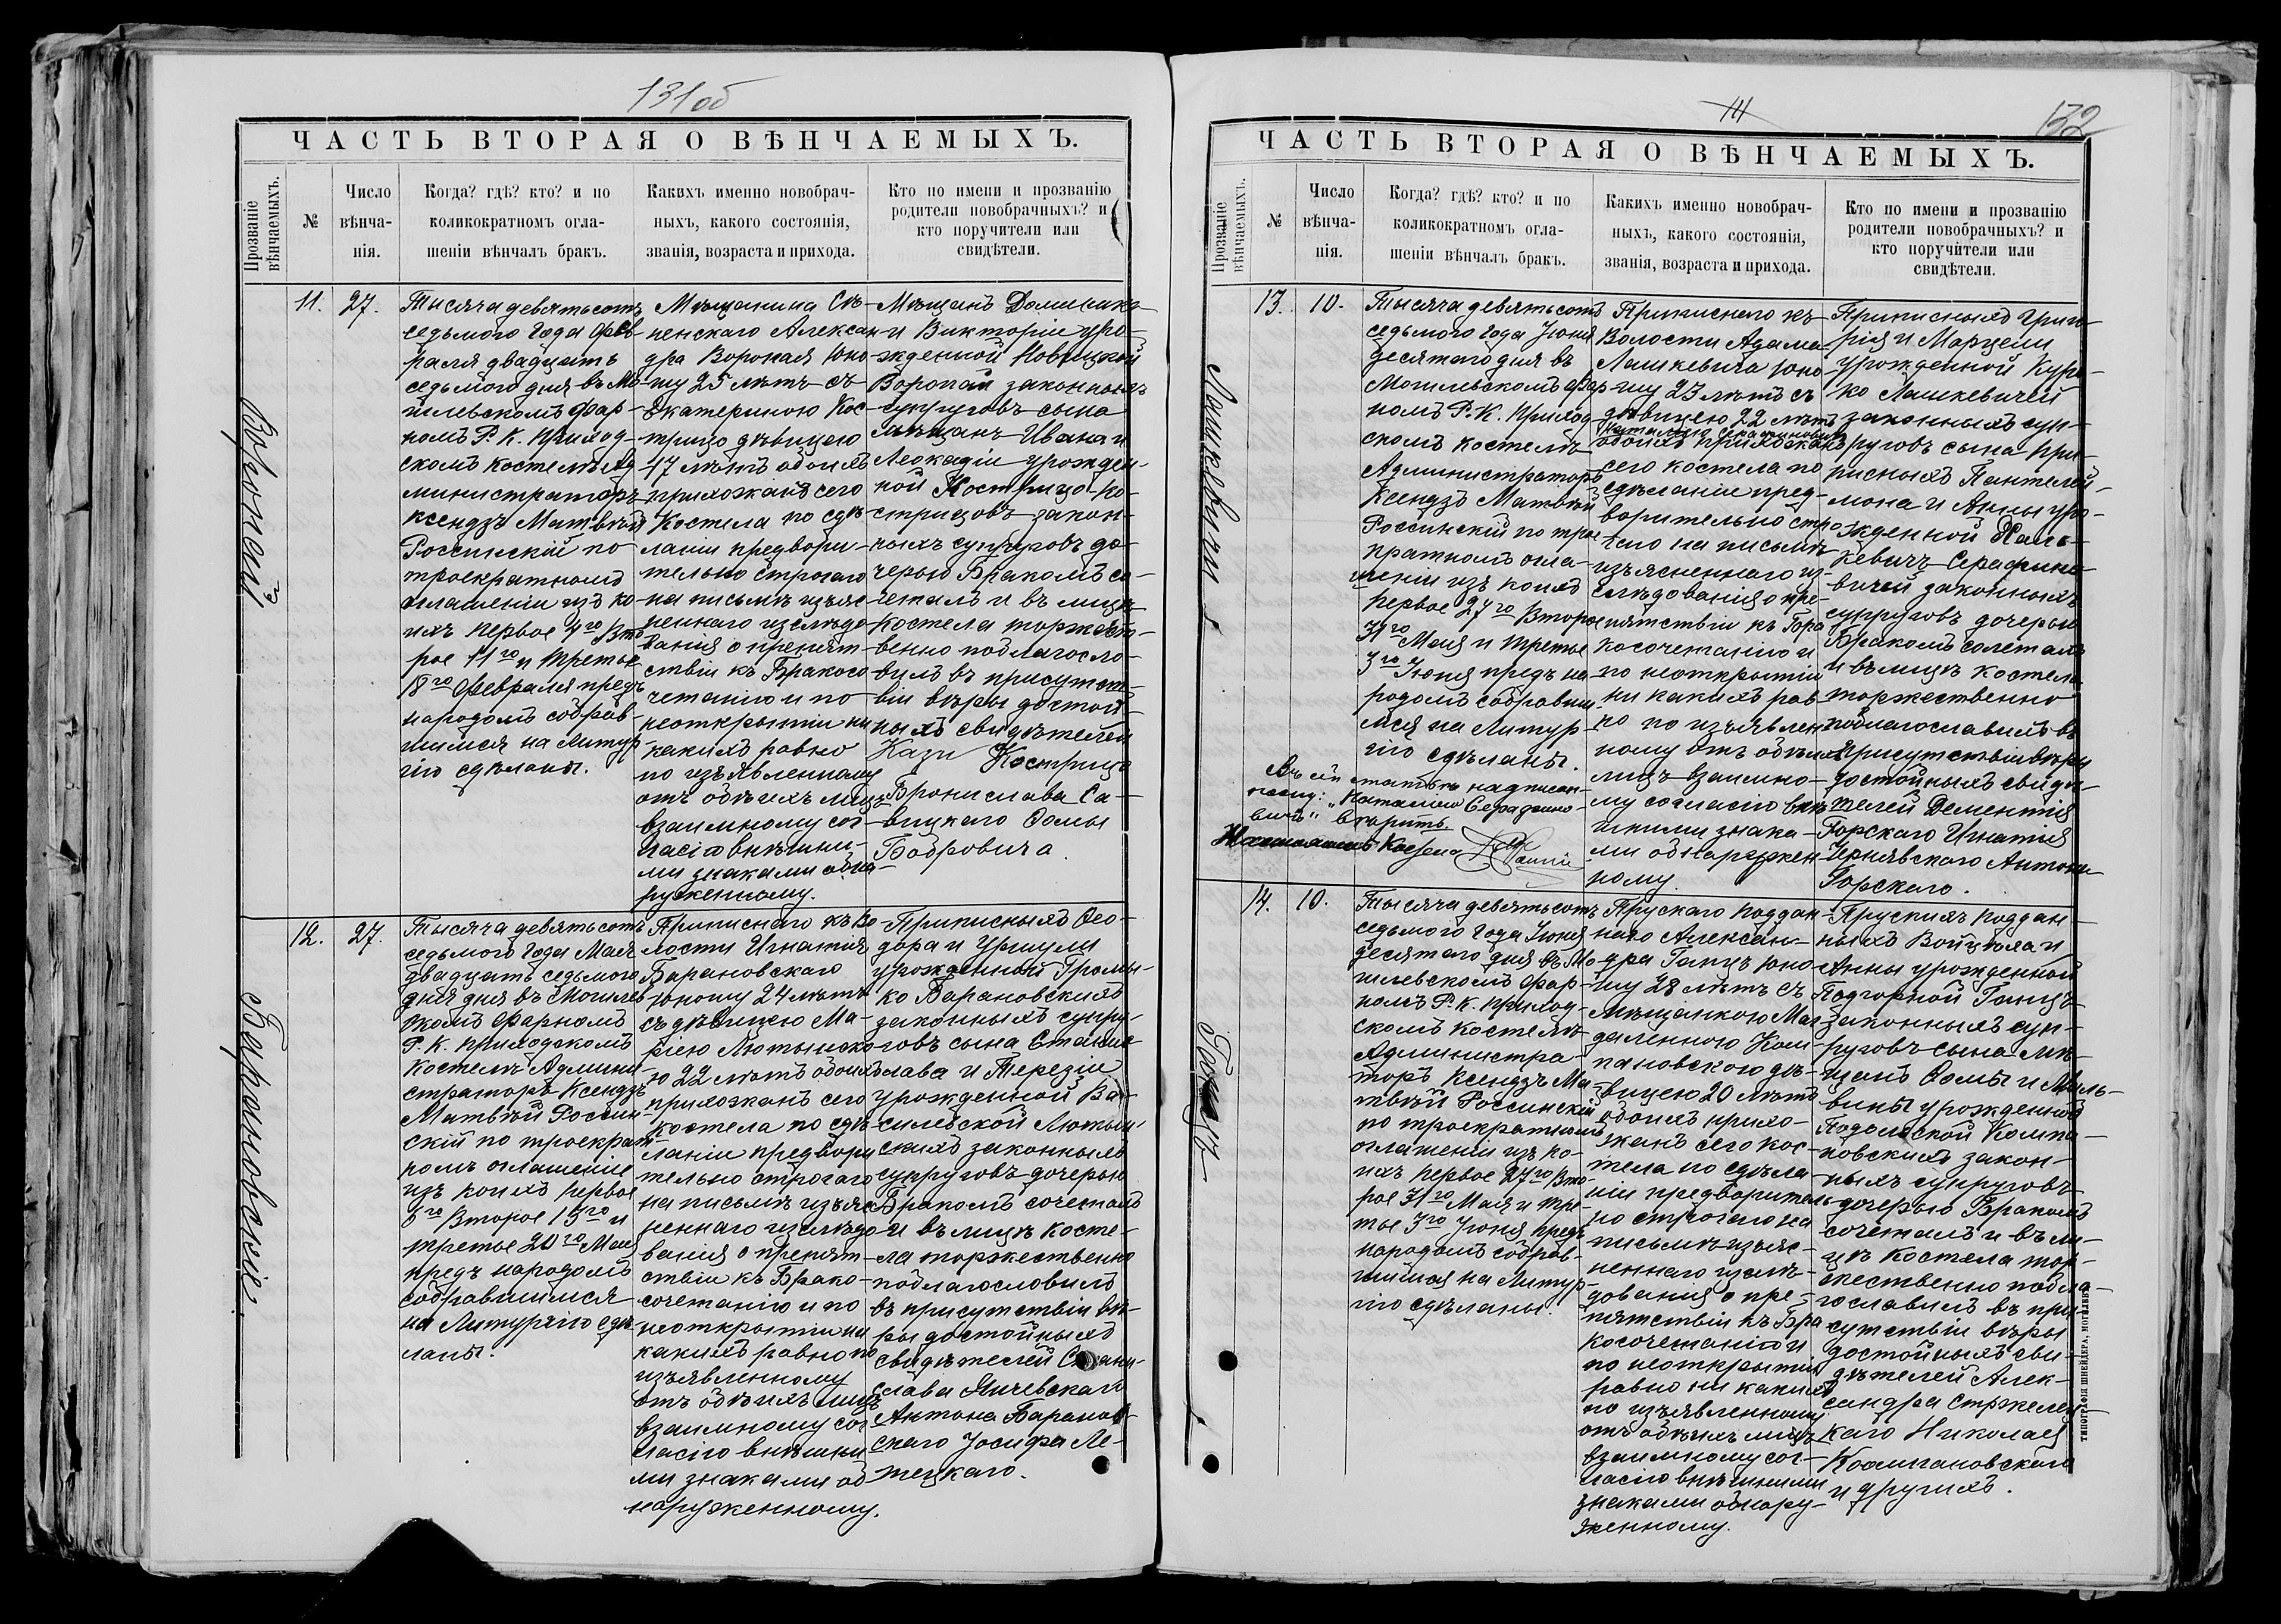 131об
ЧАСТЬ ВТОРАЯ О ВѢНЧАЕМЫХЪ.
Прозваніе вѣнчаемыхъ.
№
Число
вѣнча-
нія.
Когда? гдѣ? кто? и по
коликократномъ огла-
шеніи вѣнчалъ бракъ.
Какихъ именно новобрач-
ныхъ, какого состоянія,
званія, возраста и прихода.
Кто по имени и прозванію
родители новобрачныхъ? и
кто поручители или
свидѣтели.
Воропай
11.
27.
Тысяча девятьсотъ
седьмого года Фев-
раля двадцать
седьмого дня въ Мо-
гилевскомъ Фар-
номъ Р. К. приход-
скомъ костелѣ Ад
министраторъ
ксендзъ Матвѣй
Россинскій по
троекратномъ
оглашеніи изъ ко-
ихъ первое 4го Вто
рое 11го и третье
18го Февраля предъ
народомъ собрав-
шимся на Литур
гію сдѣланы.
Мѣщанина Сѣ-
ненскаго Алексан
дра Воропая юно
шу 25 лѣтъ съ
Екатериною Кос-
трицо дѣвицею
17 лѣтъ обоихъ
прихожанъ сего
Костела по сдѣ
ланіи предвори-
тельно строгаго
на письмѣ изъяс
неннаго изслѣдо
ванія о препят-
ствіи къ Бракосо
четанію и по
неоткрытіи ни
какихъ равно
по изъявленному
отъ обѣихъ лицъ
взаимному сог
ласію внѣшни-
ми знаками обна
руженному.
Мѣщанъ Доминика
и Викторіи уро-
жденной Новицкой
Воропай законныхъ
супруговъ сына
мѣщанъ Ивана и
Леокадіи урожден-
ной Кострицо Ко-
стрицовъ закон-
ныхъ супруговъ до-
черью Бракомъ со-
четалъ и въ лицѣ
костела торжест-
венно поблагосло-
вилъ въ присутст-
віи вѣры достой-
ныхъ свидѣтелей
Кази Кострицо
Бронислава Са-
вицкаго Ѳомы
Бобровича.
Барановскіе
12.
27.
Тысяча девятьсотъ
седьмого года Мая
двадцать седьмого
дня дня въ Могилев
скомъ Фарномъ
Р. К. приходскомъ
Костелѣ Админи
страторъ Ксендзъ
Матвѣй Россин-
скій по троекрат
номъ оглашеніи
изъ коихъ первое
6го Второе 13го и
третье 20го Мая
предъ народомъ
собравшимся
на Литургію сдѣ
ланы.
Приписнаго къ Во
лости Игнатія
Барановскаго
юношу 24 лѣтъ
съ дѣвицею Ма-
ріею Лютынско
ю 22 лѣтъ обоихъ
прихожанъ сего
костела по сдѣ
ланіи предвори
тельно строгаго
на письмѣ изъяс
неннаго изслѣдо
ванія о препят-
ствіи къ Брако-
сочетанію и по
неоткрытіи ни
какихъ равно по
изъявленному
отъ обѣихъ лицъ
взаимному сог
ласію внѣшни
ми знаками об
наруженному.
Приписныхъ Ѳео-
дора и Уршули
урожденной Громы-
ко Барановскихъ
законныхъ супру-
говъ сына Станис
лава и Терезіи
урожденной Ва-
силевской Лютын-
скихъ законныхъ
супруговъ дочерью
Бракомъ сочеталъ
и въ лицѣ косте-
ла торжественно
поблагословилъ
въ присутствіи вѣ-
ры достойныхъ
свидѣтелей Стани-
слава Яичевскаго
Антона Баранов-
скаго Іосифа Ле-
тецкаго.
132
ЧАСТЬ ВТОРАЯ О ВѢНЧАЕМЫХЪ.
Прозваніе вѣнчаемыхъ.
№
Число
вѣнча-
нія.
Когда? гдѣ? кто? и по
коликократномъ огла-
шеніи вѣнчалъ бракъ.
Какихъ именно новобрач-
ныхъ, какого состоянія,
званія, возраста и прихода.
Кто по имени и прозванію
родители новобрачныхъ? и
кто поручители или
свидѣтели.
Лашкевичи
13.
10.
Тысяча девятьсотъ
седьмого года Іюня
десятаго дня въ
Могилевскомъ Фар
номъ Р. К. приход
скомъ костелѣ
Администраторъ
Ксендзъ Матвѣй
Россинскій по трое
кратномъ огла-
шеніи изъ коихъ
первое 27го Второе
31го Мая и третье
3го Іюня предъ на
родомъ собравши
мся на Литур-
гію сдѣланы.
Въ сей статьѣ надписан-
ному: „Наталіею Серафино-
вичъ" вѣрить.
Костела
Приписнаго къ
Волости Адама
Лашкевича юно
шу 23 лѣтъ съ
дѣвицею 22 лѣтъ
Наталіею Серафиновичъ
обоихъ прихожанъ
сего костела по
сдѣланіи пред-
ворительно стро
гаго на письмѣ
изъясненнаго из-
слѣдованія о пре-
пятствіи къ Бра
косочетанію и
по неоткрытіи
ни какихъ рав
но по изъявлен
ному отъ обѣихъ
лицъ взаимно-
му согласію внѣ
шними знака-
ми обнаружен
ному.
Приписныхъ Григо-
рія и Марцели
урожденной Кури-
ко Лашкевичей
законныхъ суп-
руговъ сына при-
писныхъ Пантелей-
мона и Анны уро-
жденной Халь-
кевичъ Серафино
вичей законныхъ
супруговъ дочерью
Бракомъ сочеталъ
и въ лицѣ костела
торжественно
поблагославилъ въ
присутствіи вѣры
достойныхъ свидѣ-
телей Дементія
Горскаго Игнатія
Чернявскаго Антона
Горскаго.
Ганцъ
14.
10.
Тысяча девятьсотъ
седьмого года Іюня
десятаго дня въ Мо
гилевскомъ Фар-
номъ Р. К. приход-
скомъ костелѣ
Администра-
торъ Ксендзъ Ма
твѣй Россинскій
по троекратномъ
оглашеніи изъ ко-
ихъ первое 27го Вто-
рое 31го Мая и тре-
тье 3го Іюня предъ
народомъ собрав-
шимся на Литур
гію сдѣланы.
Прускаго поддан
наго Алексан-
дра Ганцъ юно-
шу 28 лѣтъ съ
мѣщанкою Маг
даленною Ком-
пановскою дѣ-
вицею 20 лѣтъ
обоихъ прихо-
жанъ сего кос-
тела по сдѣла
ніи предворитель
но строгаго на
письмѣ изъяс-
неннаго изслѣ-
дованія о пре-
пятствіи къ Бра
косочетанію и
по неоткрытіи
равно ни какихъ
по изъявленному
отъ обѣихъ лицъ
взаимному сог-
ласію внѣшними
знаками обнару-
женному.
Прускихъ поддан
ныхъ Войцѣха и
Анны урожденной
Подгорной Ганцъ
законныхъ суп-
руговъ сына мѣ-
щанъ Ѳомы и Маль-
вины урожденной
Подольской Компа-
новскихъ закон-
ныхъ супруговъ
дочерью Бракомъ
сочеталъ и въ ли-
цѣ костела тор-
жественно побла-
гославилъ въ при-
сутствіи вѣры
достойныхъ сви-
дѣтелей Алек-
сандра Стржелец
каго Николая
Компановскаго
и другихъ.
ТИПОГРАФІЯ ШНЕЙДЕРА, МОГИЛЕВЪ.